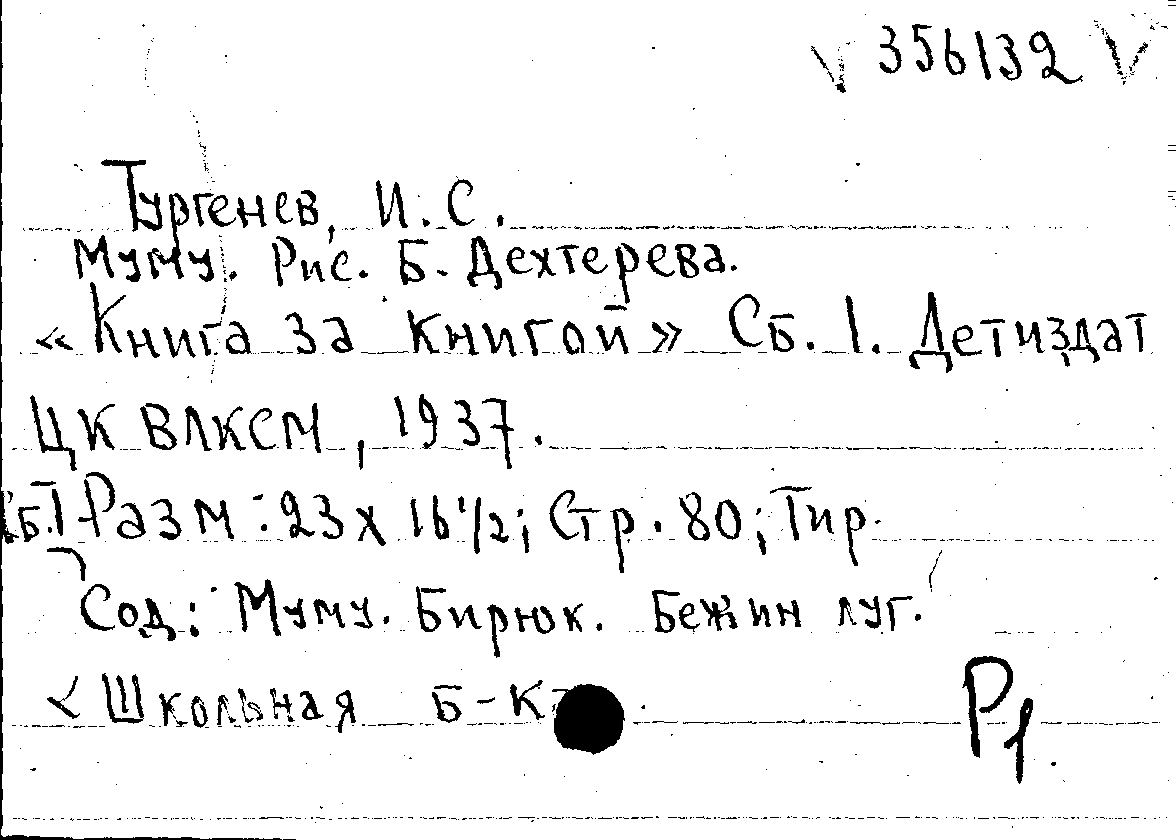 V 356132 V
Тургенев, И. С.
Муму. Рис. Б. Дехтерева.
«Книга за книгой» Сб. 1. Детиздат
ЦК ВЛКСМ, 1937.
Сб.I Разм: 23 х 16 1/2; Стр. 80; Тир.
Сод: Муму. Бирюк. Бежин луг.
< Школьная б-к
P1.